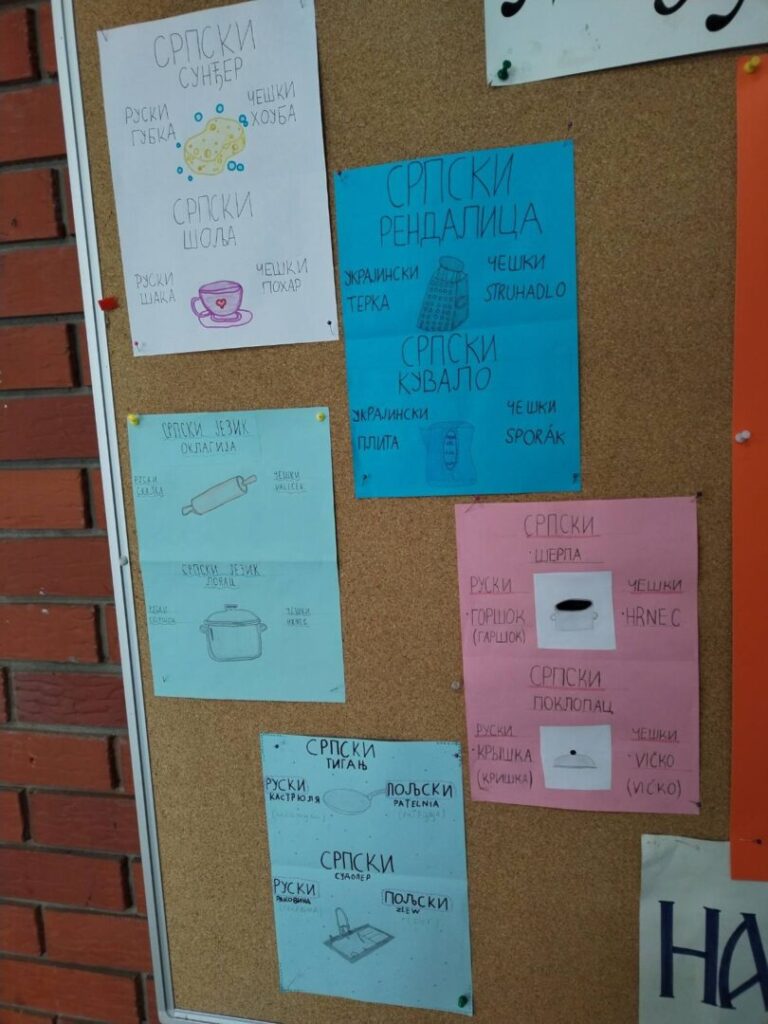 СРПСКИ
СУНЂЕР
РУСКИ
ГУБКА
ЧЕШКИ
ХОУБА
СРПСКИ
ШОЉА
РУСКИ
ШАКА
ЧЕШКИ
ПОХАР
СРПСКИ
РЕНДАЛИЦА
УКРАЈИНСКИ
ТЕРКА
ЧЕШКИ
STRUHADLO
СРПСКИ
КУВАЛО
УКРАЈИНСКИ
ПЛИТА
ЧЕШКИ
SPORÁK
СРПСКИ ЈЕЗИК
ОКЛАГИЈА
ЧЕШКИ
СРПСКИ ЈЕЗИК
ЛОНАЦ
ЧЕШКИ
СРПСКИ
ШЕРПА
РУСКИ
ГОРШОК
(ГАРШОК)
ЧЕШКИ
HRNEC
СРПСКИ
ПОКЛОПАЦ
РУСКИ
КРЫШКА
(КРИШКА)
ЧЕШКИ
VIČKO
СРПСКИ
ТИГАЊ
РУСКИ
КАСТРЮЛЯ
ПОЉСКИ
PATELNIA
СРПСКИ
СУДОПЕР
РУСКИ
РАКОВИНА
ПОЉСКИ
ZLEW
НА